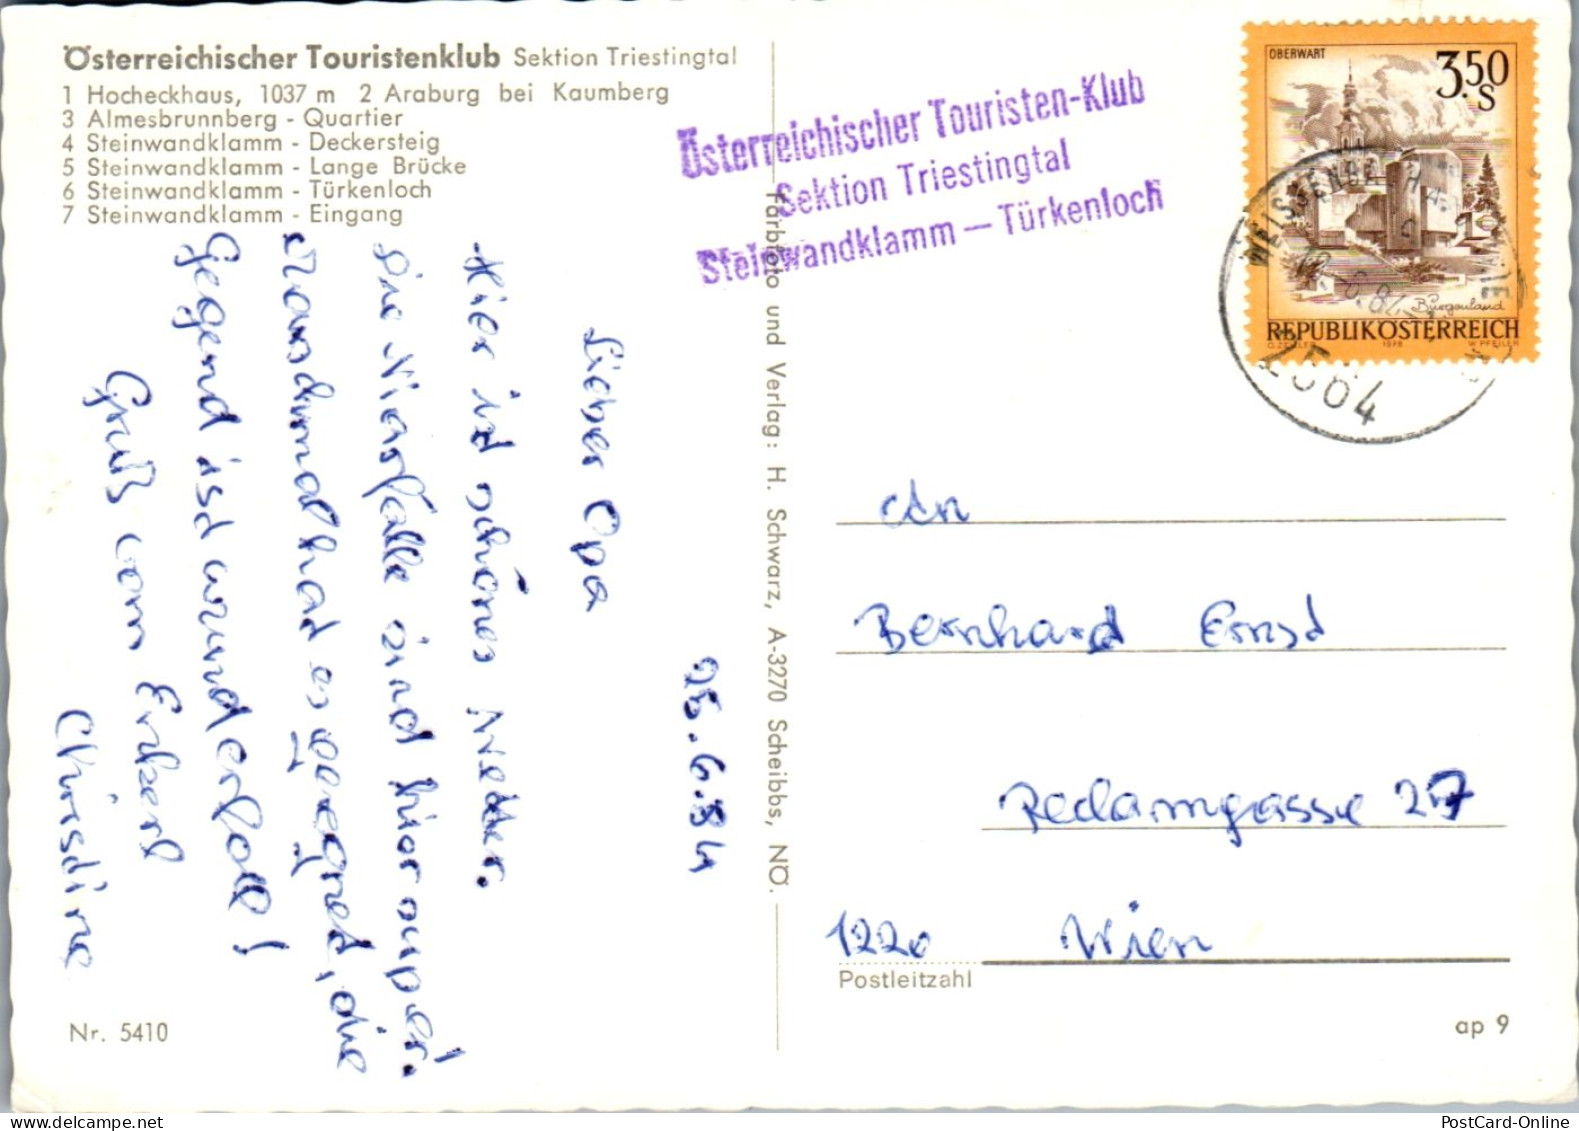 Österreichischer Touristenklub Sektion Triestingtal
1 Hocheckhaus, 1037 m 2 Araburg bei Kaumberg
3 Almesbrunnberg - Quartier
4 Steinwandklamm - Deckersteig
5 Steinwandklamm - Lange Brücke
6 Steinwandklamm - Türkenloch
7 Steinwandklamm - Eingang
25.6.84
Lieber Opa
Hier ist schönes Wetter.
Die Wasserfälle sind hier super!
Manchmal hat es geregnet, die
Gegend ist wundervoll!
Gruß vom Enkerl
Christine
Nr. 5410
Farbfoto und Verlag: H. Schwarz, A-3270 Scheibbs, NÖ.
Österreichischer Touristen-Klub
Sektion Triestingtal
Steinwandklamm — Türkenloch
OBERWART
3.50
S
Burgenland
REPUBLIK ÖSTERREICH
1978
W. PFEILER
2564
An
Bernhard Ernst
Reclamgasse 27
1220 Wien
Postleitzahl
ap 9